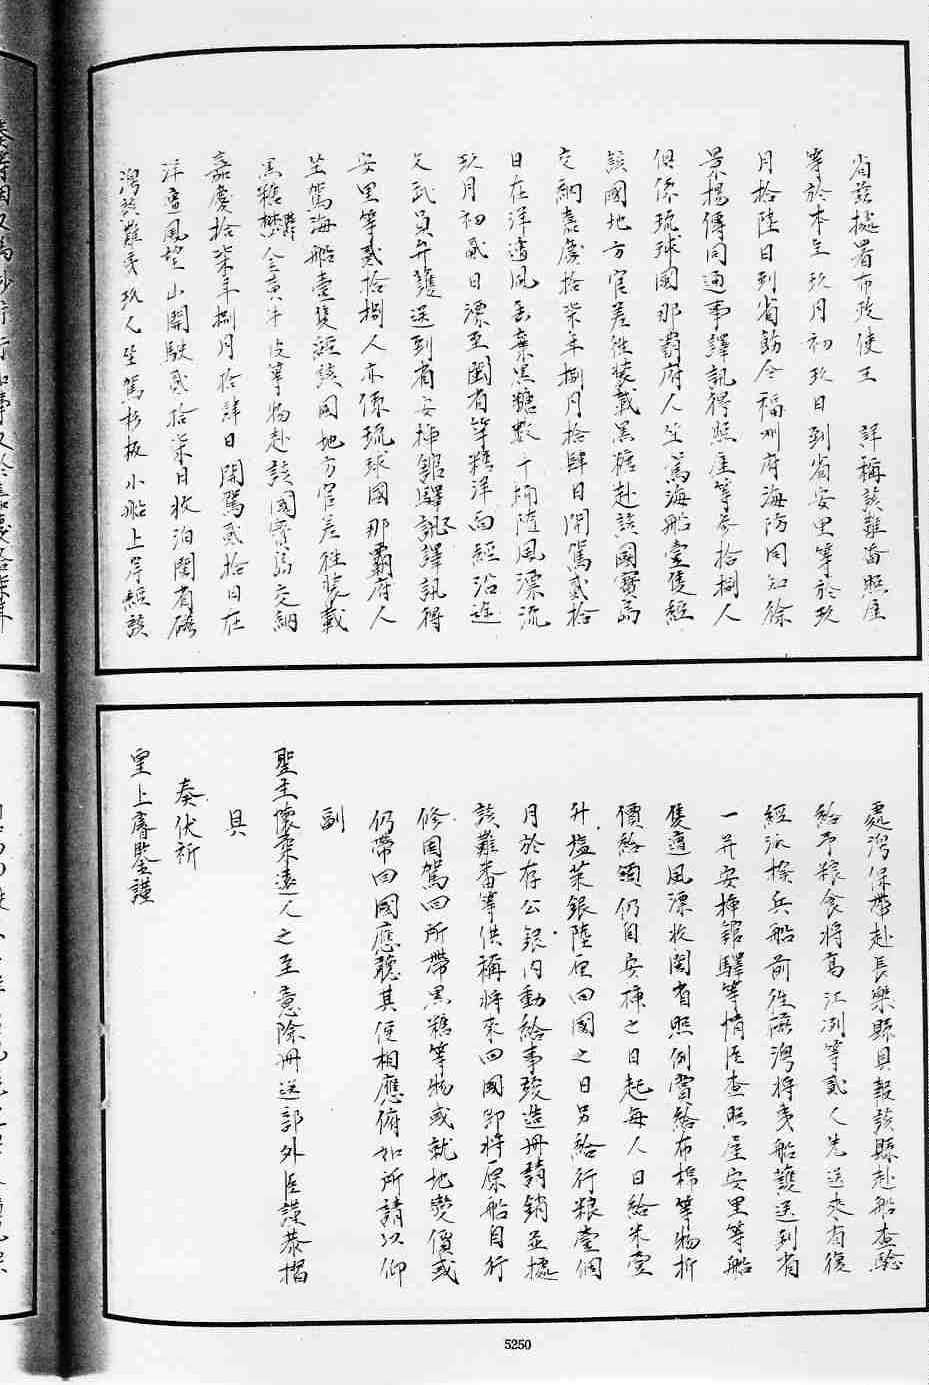 省茲據署布政使王　詳稱該難畨照屋
等於本年玖月初玖日到省安里等於玖
月拾陸日到省飭令福州府海防同知徐
景揚傳同通事譯訊得照屋等叁拾捌人
俱係琉球國那霸府人坐駕海船壹隻經
該國地方官差徃裝載黑糖赴該國寳島
交納嘉慶拾柒年捌月拾肆日開駕貳拾
日在洋遭風丟棄黑糖數十桶隨風漂流
玖月初貳日漂至閩省竿塘洋面經沿途
文武員弁護送到省安揷館驛訊譯訊得
安里等貳拾捌人亦係琉球國那霸府人
坐駕海船壹隻經該國地方官差徃裝載
黑糖 牛皮等物赴該國寳島交納
嘉慶拾柒年捌月拾肆日開駕貳拾日在
洋遭風望山開駛貳拾柒日收泊閩省磁
灣該難夷玖人坐駕杉板小船上岸經該
處灣保帶赴長樂縣具報該縣赴船查驗
給予粮食將高江洲等貳人先送來省復
經派撥兵船前徃磁灣將夷船護送到省
一并安揷館驛等情臣查照屋安里等船
隻遭風漂收閩省照例賞給布棉等物折
價給領仍自安揷之日起每人日給米壹
升塩菜銀陸厘回國之日另給行粮壹個
月於存公銀內動給事竣造冊請銷並據
該難畨等供稱將來回國即將原船自行
修固駕回所帶黑糖等物或就地變價或
仍帶回國應聽其便相應俯如所請以仰
副
聖主懷柔遠人之至意除冊送部外臣謹恭摺
具
奏伏祈
皇上睿鑒謹
5250